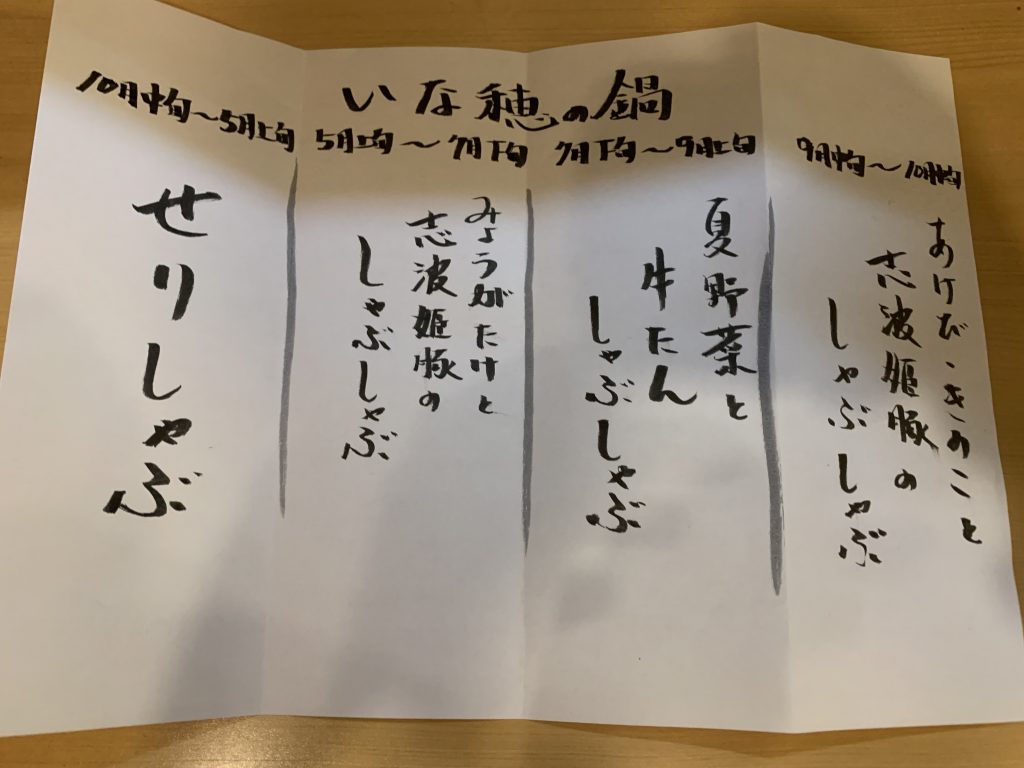 いな穂の鍋
10月中旬～5月上旬
せりしゃぶ
5月上旬～7月下旬
みょうがたけと
志波姫豚の
しゃぶしゃぶ
7月下旬～9月上旬
夏野菜と
牛たん
しゃぶしゃぶ
9月中旬～10月中旬
あけび・きのこと
志波姫豚の
しゃぶしゃぶ